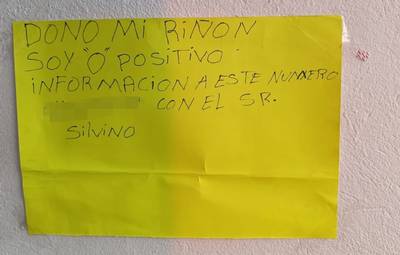 DONO MI RIÑON
SOY "O" POSITIVO
INFORMACION A ESTE NUMERO
CON EL SR.
Silvino